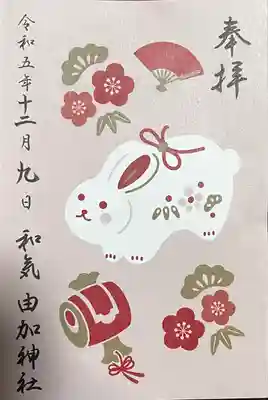 奉拝
令和五年十二月九日 和気 由加神社